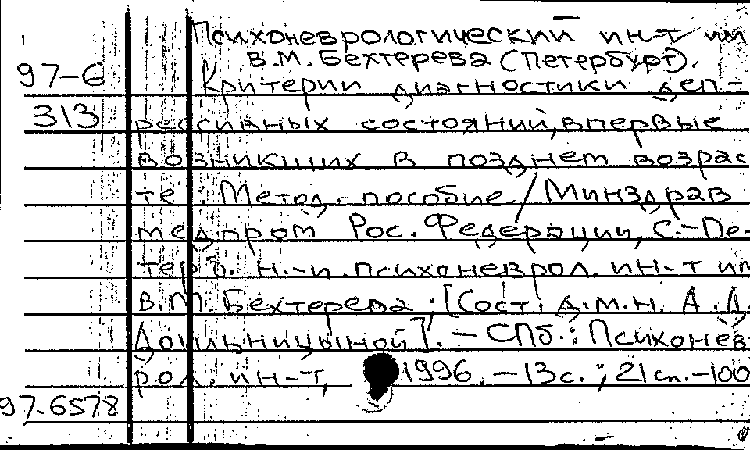 Психоневрологический ин-т им
В.М. Бехтерева (Петербург).
97-6 Критерии диагностики деп-
313 рессивных состояний, впервые
возникших в позднем возрас
те : Метод. пособие / Минздрав
медпром Рос. Федерации, С.-Пе-
терб. н.-и. психоневрол. ин-т им
В.М. Бехтерева ; [Сост. д.м.н. А.Д.
]. - СПб. : Психонев
рол. ин-т, 1996. - 13 с. ; 21 см. - 100
97-6578